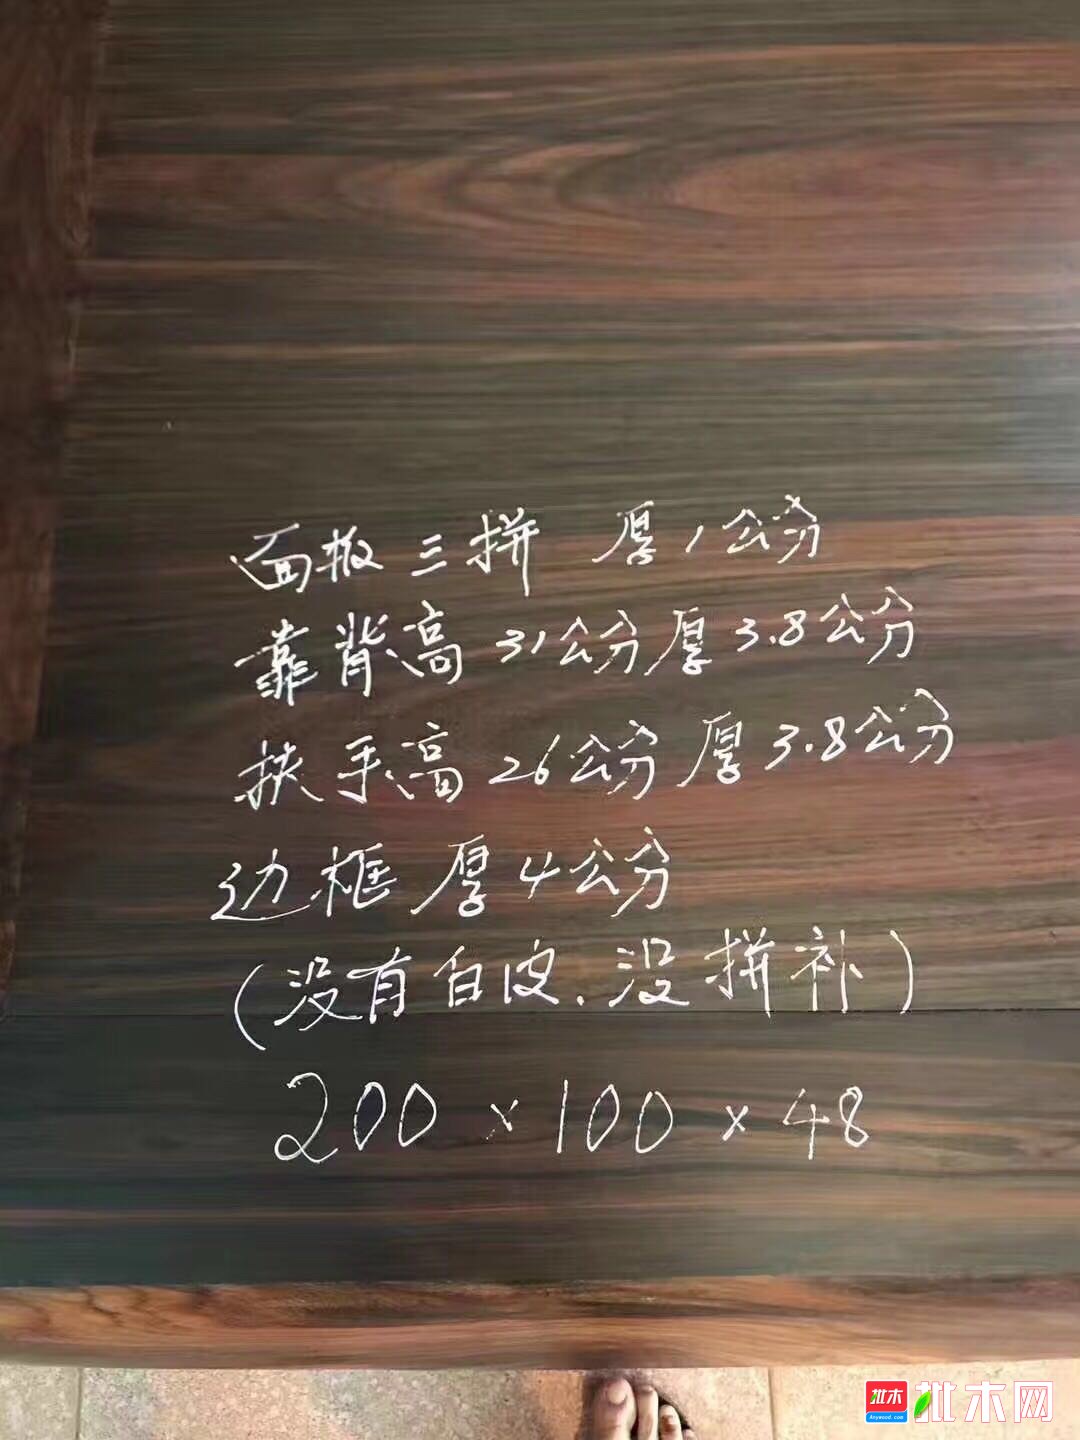 面板三拼 厚1公分
靠背高31公分厚3.8公分
扶手高26公分厚3.8公分
边框厚4公分
(没有白皮.没拼补)
200×100×48
批木 批木网
Anywood.com